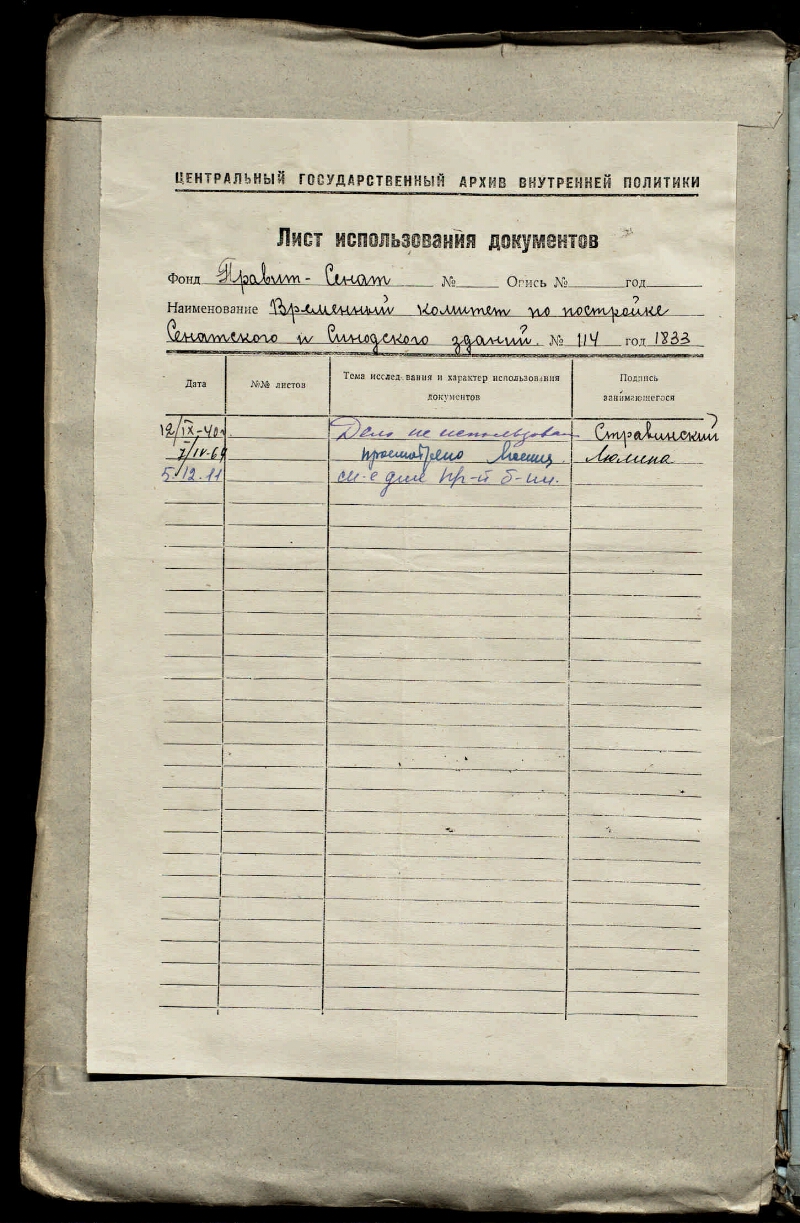 ЦЕНТРАЛЬНЫЙ ГОСУДАРСТВЕННЫЙ АРХИВ ВНУТРЕННЕЙ ПОЛИТИКИ
Лист использования документов
Фонд Правит- Сенат № Опись № год
Наименование Временный комитет по постройке
Сенатского и Синодского зданий. № 114 год 1833
Дата №№ листов Тема исследования и характер использования документов Подпись занимающегося
12/IX-40г Дело не использован Стравинский
7/IV-69 просмотрено Люлина
5.12.11 см-е для пр-й б-ни.